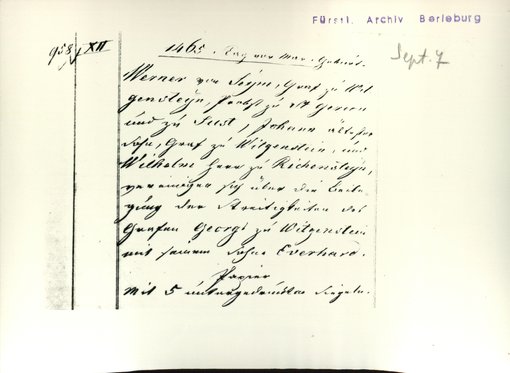 Fürstl. Archiv Berleburg
958 XII
1465. Tag vor Mar. Geburt.
Sept. 7
Werner von Seyn, Graf zu Wit-
gensteyn, Probst zu St Gereon
und zu Sust, Johann ältester
Sohn, Graf zu Witgenstein, und
Wilhelm Herr zu Richensteyn,
vereinigen sich über die Beile-
gung der Streitigkeiten des
Grafen Georgs zu Witgenstein
mit seinem Sohne Everhard.
Papier
Mit 5 untergedruckten Siegeln.